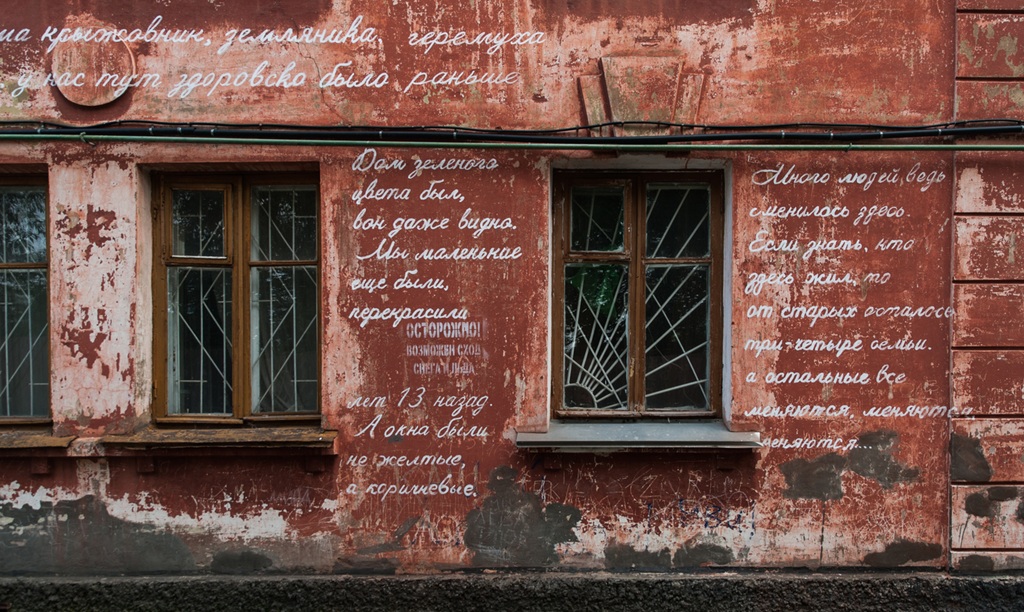 та крыжовник, земляника, черемуха
у нас тут здоровско было раньше
Дом зеленого
цвета был,
вон даже видно.
Мы маленькие
еще были.
перекрасили
ОСТОРОЖНО!
ВОЗМОЖЕН СХОД
СНЕГА И ЛЬДА
лет 13 назад.
А окна были
не желтые,
а коричневые.
Много людей ведь
сменилось здесь.
Если знать, кто
здесь жил, то
от старых осталось
три-четыре семьи.
а остальные все
меняются, меняются
меняются...